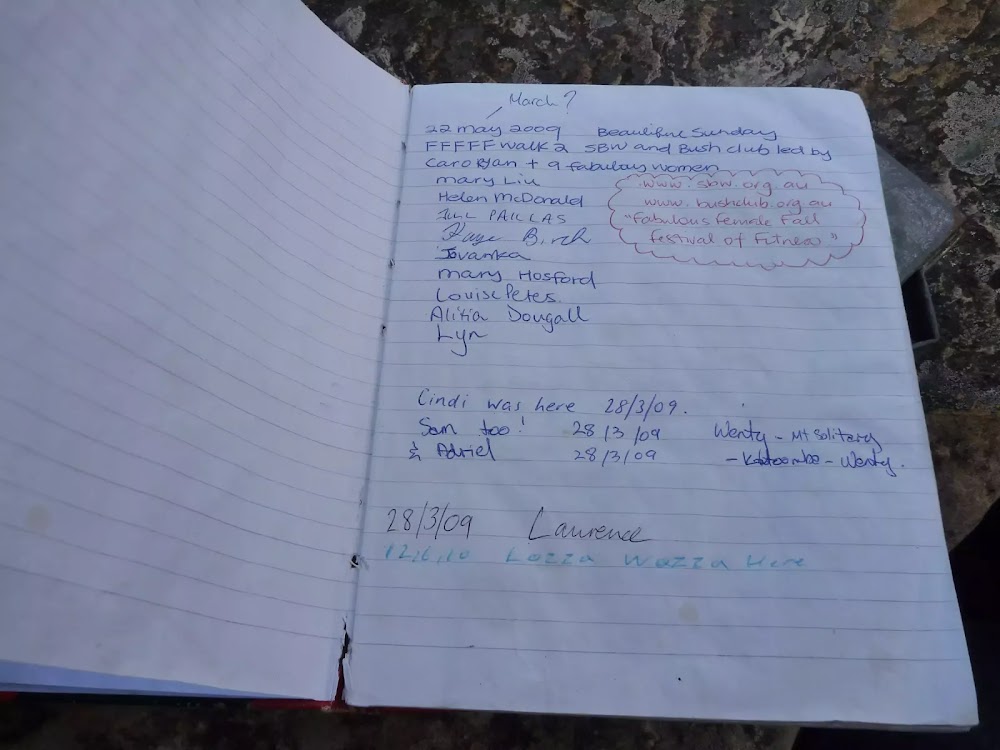 March?
22 may 2009 Beautiful Sunday
FFFFF walk 2 SBW and Bush club led by
Caro Ryan + 9 fabulous women
mary Liu
Helen McDonald
JILL PAILLAS
Kaye Birch
Jovanka
mary Hosford
Louise Petes
Alitia Dougall
Lyn
www.sbw.org.au
www.bushclub.org.au
"Fabulous Female Fall
Festival of Fitness"
Cindi was here 28/3/09.
Sam too! 28/3/09 Wenty - Mt Solitary
& Adriel 28/3/09 - Katoomba - Wenty.
28/3/09 Laurence
Lozza Wozza Here